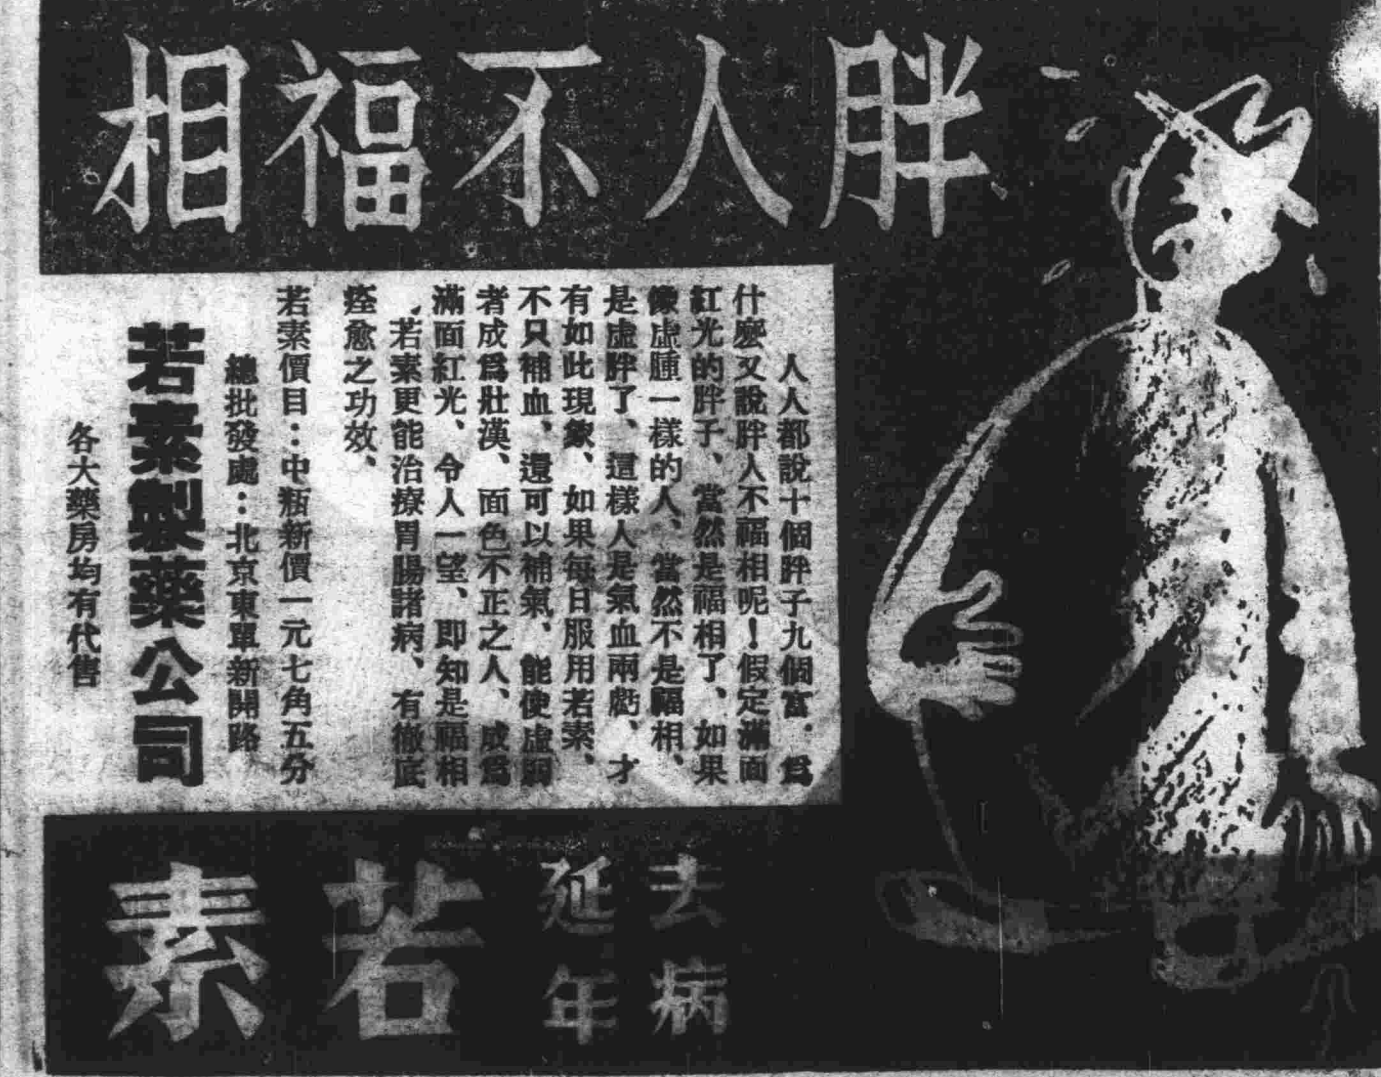 胖人不福相
人人都說十個胖子九個富。爲
什麼又說胖人不福相呢！假定滿面
紅光的胖子、當然是福相了、如果
像虛腫一樣的人、當然不是福相、
是虛胖了、這樣人是氣血兩虧、才
有如此現象、如果每日服用若素、
不只補血、還可以補氣、能使虛弱
者成爲壯漢、面色不正之人、成爲
滿面紅光、令人一望、即知是福相
、若素更能治療胃腸諸病、有徹底
痊愈之功效、
若素價目：中瓶新價一元七角五分
總批發處：北京東單新開路
若素製藥公司
各大藥房均有代售
去病
延年
若素